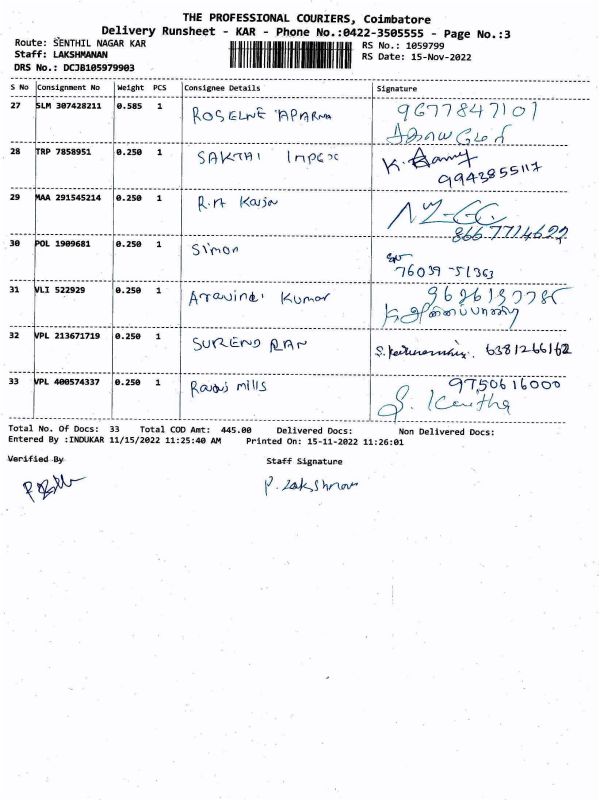 THE PROFESSIONAL COURIERS, Coimbatore
Delivery Runsheet - KAR - Phone No.:0422-3505555 - Page No.:3
Route: SENTHIL NAGAR KAR
Staff: LAKSHMANAN
DRS No.: DCJB105979903
RS No.: 1059799
RS Date: 15-Nov-2022
S No Consignment No Weight PCS Consignee Details Signature
27 SLM 307428211 0.585 1 ROSELNE APARNA 9677847101
28 TRP 7858951 0.250 1 SAKTHI IMPEX K.
9943855117
29 MAA 291545214 0.250 1 R.A
866 7714622
30 POL 1909681 0.250 1 Simon
76039-51363
31 VLI 522929 0.250 1 Aravind Kumar
32 VPL 213671719 0.250 1 SURENDRAN S. 6381266162
33 VPL 400574337 0.250 1 mills 9750616000
S. Kavitha
Total No. Of Docs: 33 Total COD Amt: 445.00 Delivered Docs: Non Delivered Docs:
Entered By :INDUKAR 11/15/2022 11:25:40 AM Printed On: 15-11-2022 11:26:01
Verified By Staff Signature
P. Lakshman